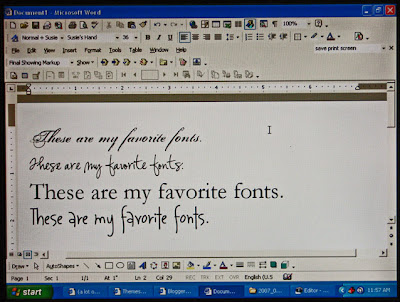 Document1 - Microsoft Word
100%
Normal + Susie Susie's Hand 36
File Edit View Insert Format Tools Table Window Help save print screen
Final Showing Markup Show
These are my favorite fonts.
These are my favorite fonts.
These are my favorite fonts.
These are my favorite fonts.
Draw AutoShapes
Page 1 Sec 1 1/1 At 1" Ln 2 Col 29 REC TRK EXT OVR English (U.S
Themes... Blogger... Docum... 2007_0... Editor - 11:57 AM